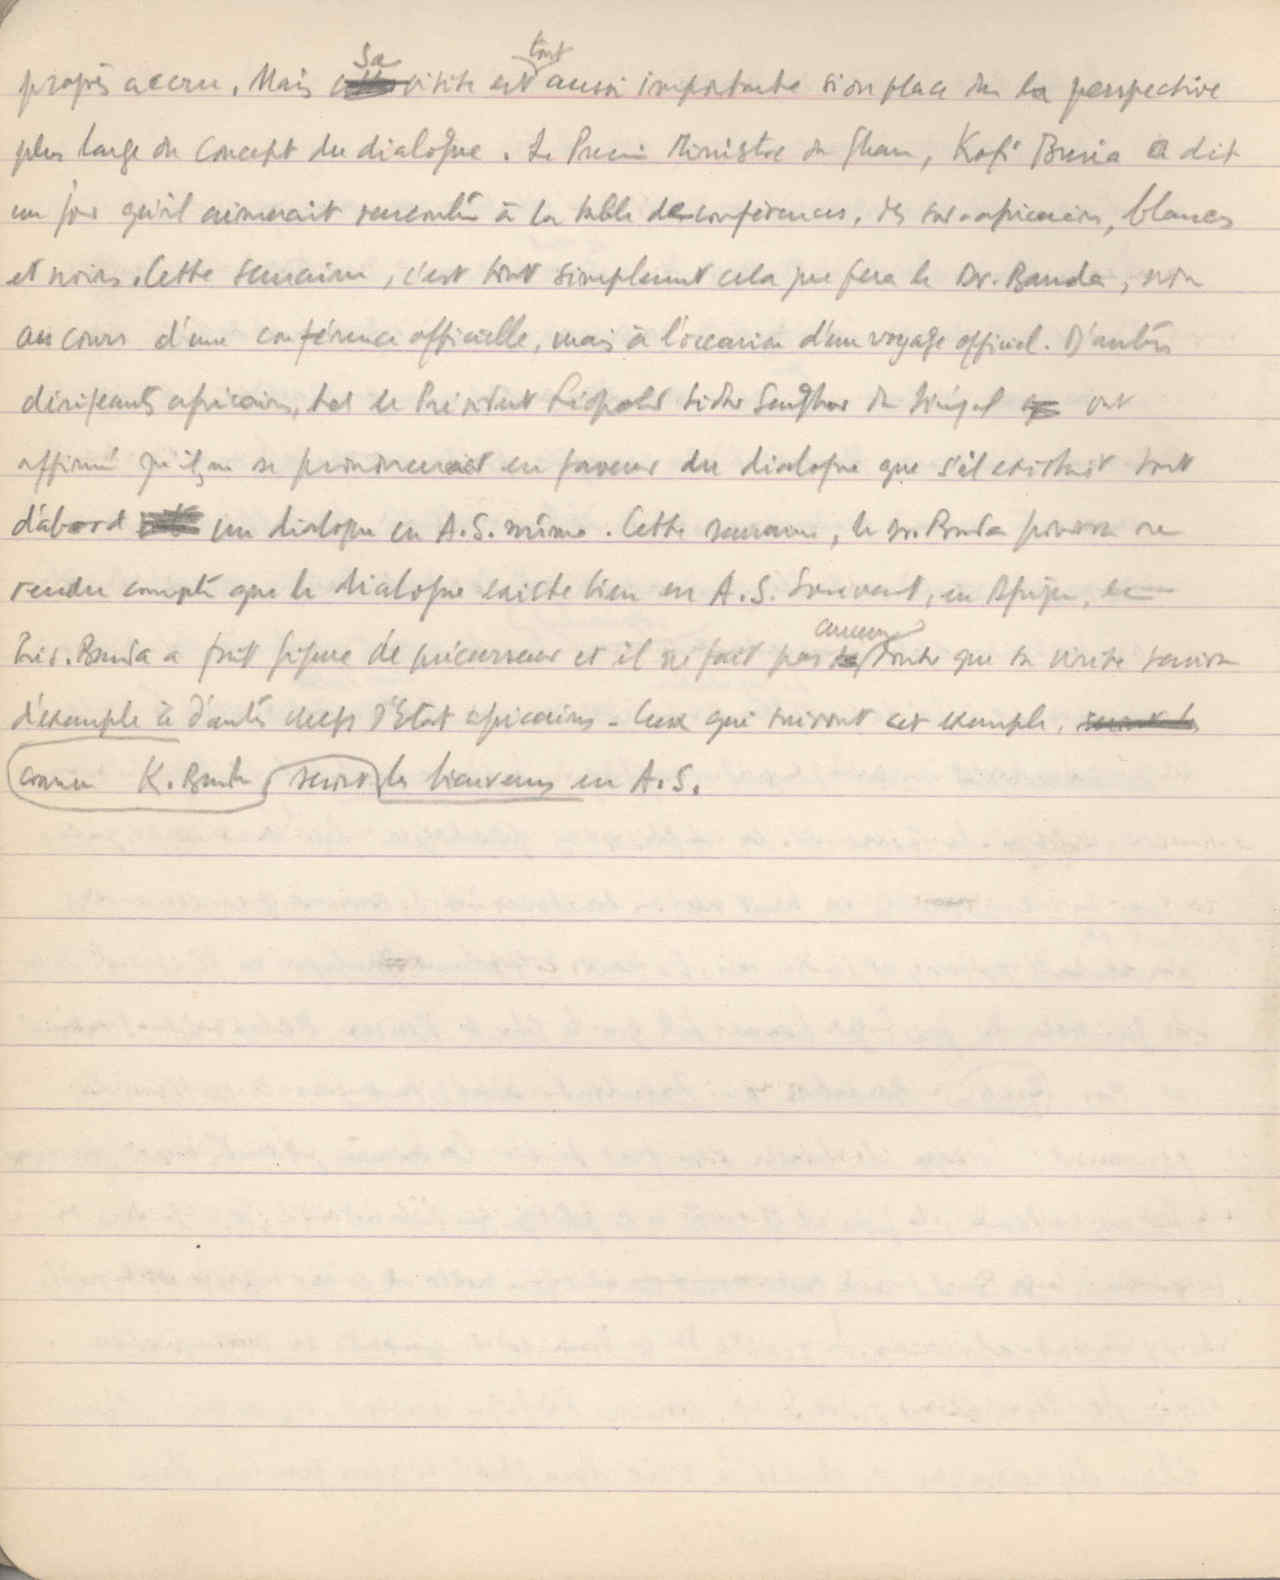 progrès accru. Mais sa visite est tout aussi importante si on place dans la perspective
plus large du concept du dialogue. Le Premier Ministre du Ghana, Kofi Busia a dit
un jour qu'il aimerait rencontrer à la table de conférences, des sud-africains, blancs
et noirs. Cette semaine, c'est tout simplement cela que fera le Dr. Banda, non
au cours d'une conférence officielle, mais à l'occasion d'un voyage officiel. D'autres
dirigeants africains, tel le Président Léopold Sédar Senghor du Sénégal ont
affirmé qu'ils ne se prononceraient en faveur du dialogue que s'il existait tout
d'abord un dialogue en A.S. même. Cette semaine, le Dr. Banda pourra se
rendre compte que le dialogue existe bien en A.S. Souvent, en Afrique, le
Prés. Banda a fait figure de précurseur et il ne fait pas aucun doute que sa visite servira
d'exemple à d'autres chefs d'Etat africains. Ceux qui suivront cet exemple,
comme K. Banda seront les bienvenus en A.S.